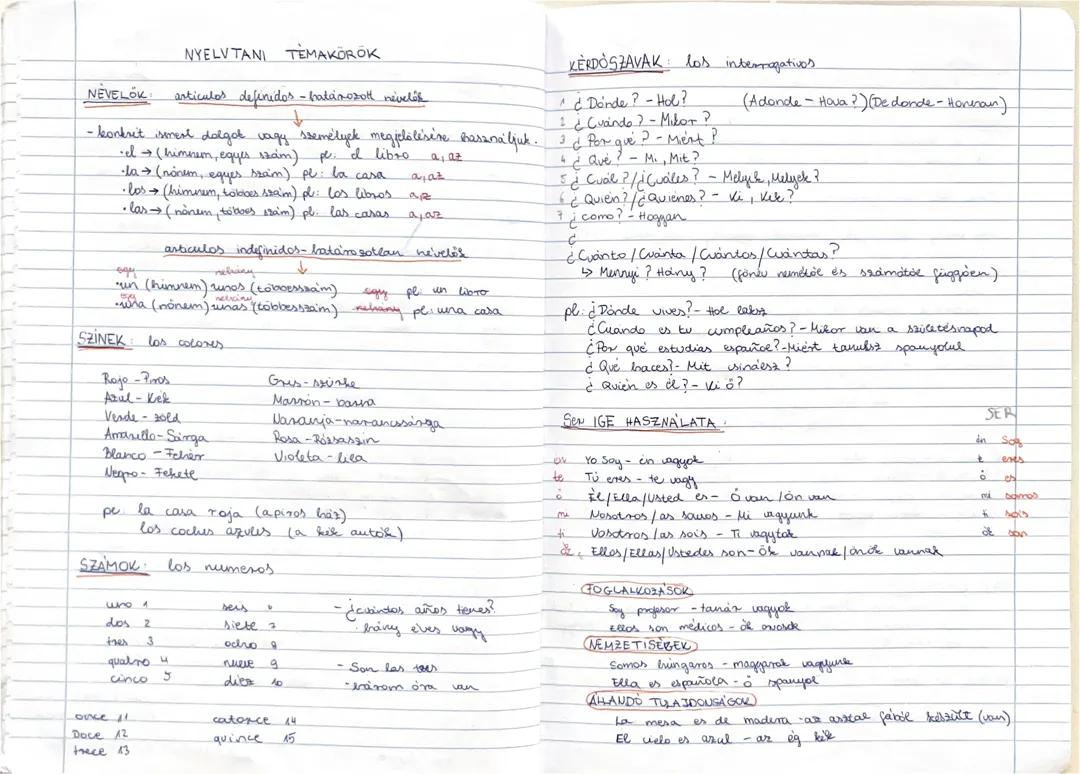 NYELVTANI TÉMAKÖRÖK
NÉVELŐK: articulos definidos - határozott névelők
- konkrét ismert dolgok vagy személyek megjelölésére használjuk.
•el → (hímnem, egyes szám) pl: el libro a, az
•la → (nőnem, egyes szám) pl: la casa a, az
•los → (hímnem, többes szám) pl: los libros a, az
•las → (nőnem, többes szám) pl: las casas a, az
articulos indefinidos - határozatlan névelők
egy néhány
•un (hímnem) unos (többesszám) egy pl: un libro
egy néhány
•una (nőnem) unas (többesszám) néhány pl: una casa
SZÍNEK: los colores
Rojo - Piros Gris - szürke
Azul - Kék Marrón - barna
Verde - zöld Naranja - narancssárga
Amarillo - Sárga Rosa - Rózsaszín
Blanco - Fehér Violeta - lila
Negro - Fekete
pl: la casa roja (a piros ház)
los coches azules (a kék autók)
SZÁMOK: los numeros
uno 1 seis 6 - ¿cuántos años tenes?
dos 2 siete 7 hány éves vagy
tres 3 ocho 8
quatro 4 nueve 9 - Son las tres
cinco 5 diez 10 - három óra van
once 11 catorce 14
Doce 12 quince 15
trece 13
KÉRDŐSZAVAK: los interrogativos
1 ¿Dónde? - Hol? (Adonde - Hova?) (De donde - Honnan)
2 ¿Cuándo? - Mikor?
3 ¿Por qué? - Miért?
4 ¿Qué? - Mi, Mit?
5 ¿Cuál?/¿Cuáles? - Melyik, Melyek?
6 ¿Quién?/¿Quiénes? - Ki, Kik?
7 ¿como? - Hogyan
¿
¿Cuánto/Cuánta/Cuántos/Cuántas?
↳ Mennyi? Hány? (főnév nemétől és számától függően)
pl: ¿Dónde vives? - Hol laksz
¿Cuando es tu cumpleaños? - Mikor van a születésnapod
¿Por qué estudias español? - Miért tanulsz spanyolul
¿Qué haces? - Mit csinálsz?
¿Quién es él? - Ki ő?
Ser IGE HASZNÁLATA: SER
én Soy
én Yo Soy - én vagyok te eres
te Tú eres - te vagy ő es
ő Él/Ella/Usted es - Ő van/Ön van mi somos
mi Nosotros/as somos - Mi vagyunk ti sois
ti Vosotros/as sois - Ti vagytok ők son
ők Ellos/Ellas/Ustedes son - Ők vannak/önök vannak
FOGLALKOZÁSOK
Soy profesor - tanár vagyok
Ellos son médicos - ők orvosok
NEMZETISÉGEK
Somos húngaros - magyarok vagyunk
Ella es española - ő spanyol
ÁLLANDÓ TULAJDONSÁGOK
La mesa es de madera - az asztal fából készült (van)
El cielo es azul - az ég kék